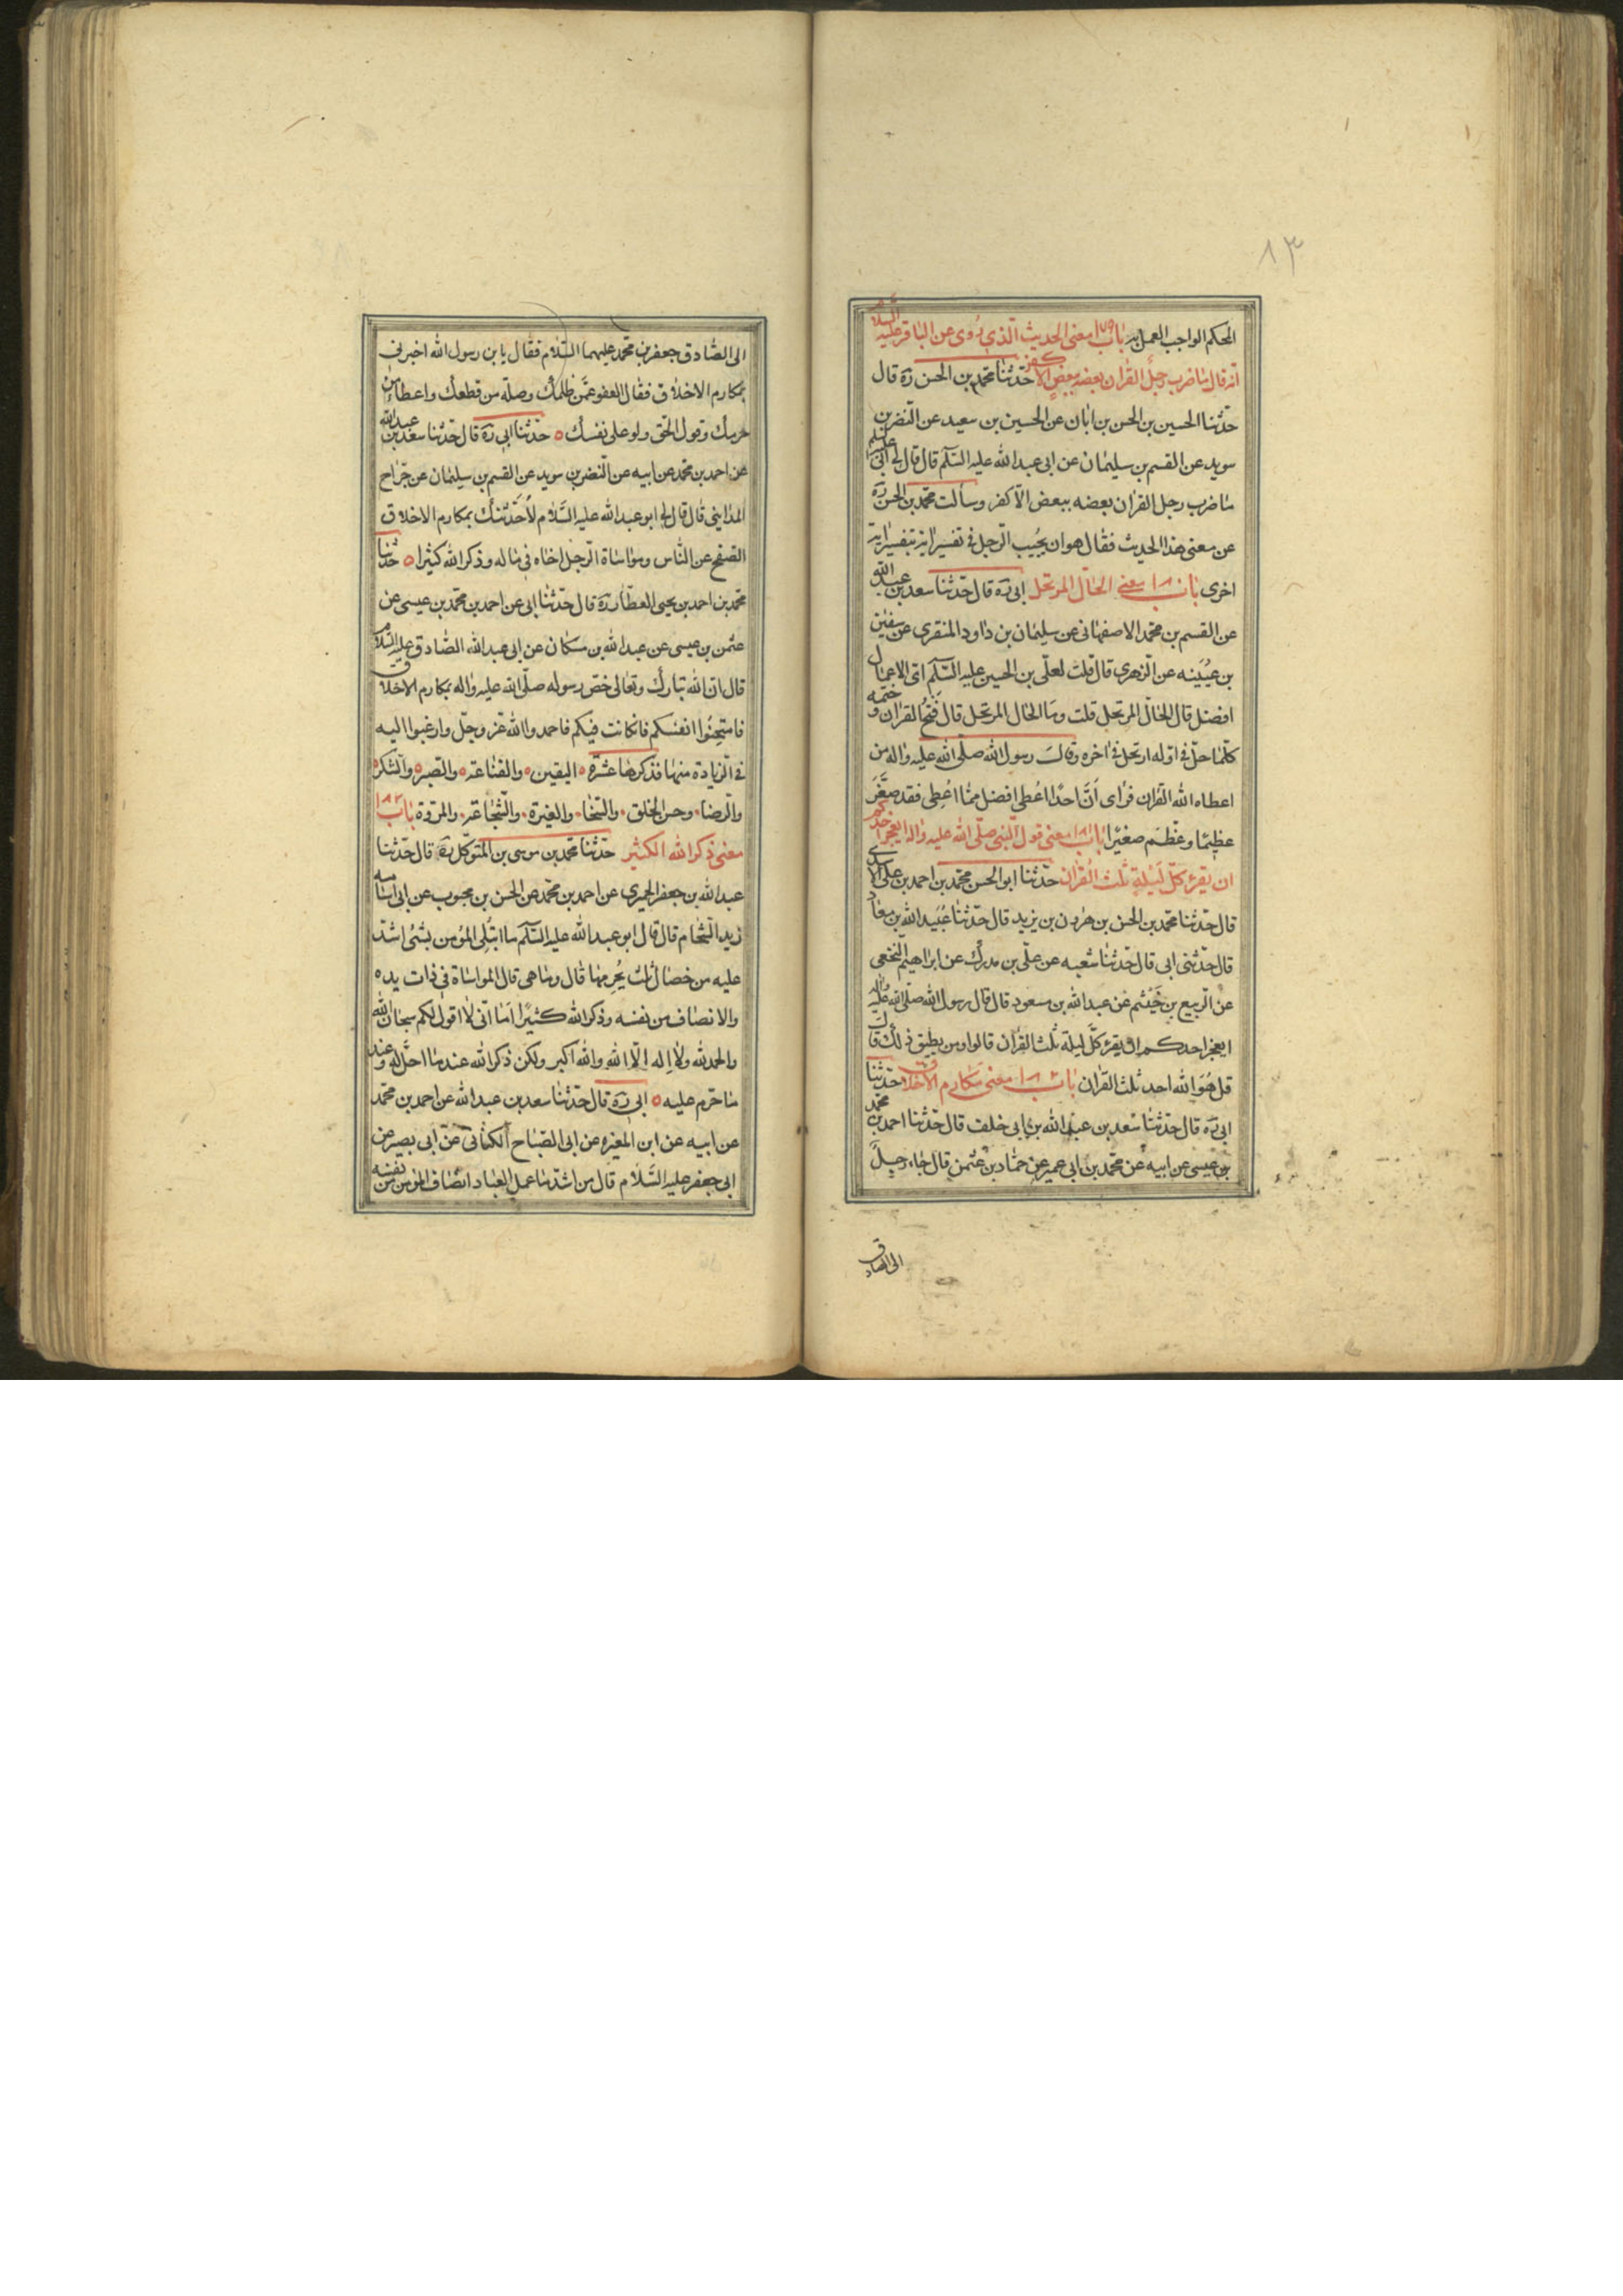 ٨٣
المحكم الواجب العمل به باب ١٧٩ معنى الحديث الّذى رُوى عن الباقر عليه السّلام
انّه قال مٰا ضرب رجلٌ القرٰان بعضه ببعضٍ الّا كفر حدّثنا محمّد بن الحسن رَه قال
حدّثنا الحسين بن الحسن بن ابٰان عن الحسين بن سعيد عن النّضر بن
سويد عن القسم بن سليمٰان عن ابى عبد الله عليه السّلم قال قال لى ابى عليه السلم
مٰا ضرب رجل القرٰان بعضه ببعض الّا كفر وسألت محمّد بن الحسن رَه
عن معنى هذا الحديث فقٰال هو ان يجُيب الرّجل فى تفسير اية بتفسير اية
اخرى باب ١٨٠ معنى الحٰال المرتحل ابى رَه قال حدّثنا سعد بن عبد الله
عن القسم بن محمّد الاصفهٰانى عن سليمٰان بن دٰاود المنقرى عن سفيٰن
بن عيُيَينه عن الزّهرى قال قلت لعلّى بن الحسين عليه السّلم اىّ الاعمٰال
افضل قال الحٰالّ المرتحل قلت ومَا الحٰال المرتحل قال فَتحُ القرٰان وختمه
كلّمٰا حلّ فى اوّله ارتحل فى اخره وقال رسول الله صلّى الله عليه واله من
اعطٰاه الله القرٰان فرٰاى اَنَّ احدًا اعُطى افضل ممّا اعُطِى فقد صَغَّرَ
عظيمًا وعَظّمَ صغيرًا باب ١٨١ معنى قول النّبى صلّى الله عليه واله ايعجز احدكم
ان يقرء كلّ لَيْلةٍ ثلث القُرٰان حدّثنا ابو الحسن محمّد بن احمد بن على الاسدى
قال حدّثنا محمّد بن الحسن بن هٰرون بن يزيد قال حدّثنٰا عُبَيد الله بن معٰاذ
قال حدّثنى ابى قال حدّثنٰا شعبه عن علّى بن مدرك عن ابرٰاهيم النّخعى
عن الرّبيع بن خَيْثم عن عبد الله بن مسعود قال قال رسول الله صلّى الله عليه واله
ايعجز احدكم ان يقرء كلَّ ليلة ثلث القرٰان قالوا ومن يطيق ذلك قال
قل هُوَ الله احد ثلث القرٰان باب ١٨٢ معنى مَكٰارم الاخلاق حدّثنا
ابى رَه قال حدّثنٰا سْعد بن عبد الله بن ابى خلف قال حدّثنا احمد بن محمّد
بن عيسى عن ابيه عن محمّد بن ابى عمير عن حمّاد بن عثمن قال جٰاء رجلٌ
الى الصادق
الى الصّادق جعفر بن محمّد عليهما السّلام فقٰال يا بن رسول الله اخبرنى
بمكارم الاخلاق فقٰال العفو عمَّن ظلمك وصلة من قطعك واعطاء من
حرمك وقول الحق ولو على نفسك ٥ حدّثنا ابى رَه قال حدّثنا سعد بن عبد الله
عن احمد بن محمّد عن ابيه عن النّضر بن سويد عن القسم بن سليمٰان عن جرّاح
المدٰاينى قال قال لى ابو عبد الله عليه السَّلام لأحَدّثنّك بمكارم الاخلاق
الصّفح عن النّاس ومواسٰاة الرّجل اخاه فى مٰاله وذكر الله كثيرا ٥ حدّثنا
محمّد بن احمد بن يحيى العطّار رَه قال حدّثنا ابى عن احمد بن محمّد بن عيسى عن
عثمن بن عيسى عن عبد الله بن مسكٰان عن ابى عبد الله الصّادق عليه السّلام
قال انّ الله تبٰارك وتعالى خصّ رسوله صلّى الله عليه واله بمكارم الاخلاق
فامتحِنُوا انفسَكم فان كانت فيكم فاحمدوا الله عزّ وجلّ وارغبوا اليه
فى الزّيادة منها فذكرهٰا عشرة ٥ اليقين ٥ والقنٰاعة ٥ والصّبر ٥ والشّكر ٥
والرّضا ٠ وحسن الخلق ٠ والسّخا ٠ والغيرة ٠ والشّجٰاعة ٠ والمروّة باب ١٨٣
معنى ذكر الله الكثير حدّثنا محمّد بن موسى بن المتوكّل رَه قال حدّثنا
عبد الله بن جعفر الحميرى عن احمد بن محمّد عن الحسن بن محبوب عن ابى اسٰامه
زيد الشّحّام قال قال ابو عبد الله عليه السّلم مٰا ابتُلِى المؤمن بشئ اشدّ
عليه من خصٰال ثلث يُحْرمهٰا قال ومٰا هى قال المواسٰاة فى ذات يده
والانصاف من نفسه وذكر الله كثيرًا اَمٰا انّى لٰا اقول لكم سبحٰان الله
والحمد لله ولٰا اله الّا الله والله اكبر ولكن ذكر الله عند مٰا احلّ له وعند
مٰا حرّم عليه ٥ ابى رَه قال حدّثنٰا سعد بن عبد الله عن احمد بن محمّد
عن ابيه عن ابن المغيره عن ابى الصّبٰاح الكنٰانى عن ابى بصير عن
ابى جعفر عليه السَّلام قال من اشدّ مٰا عمل العبٰاد انصٰاف المؤمن من نفسه